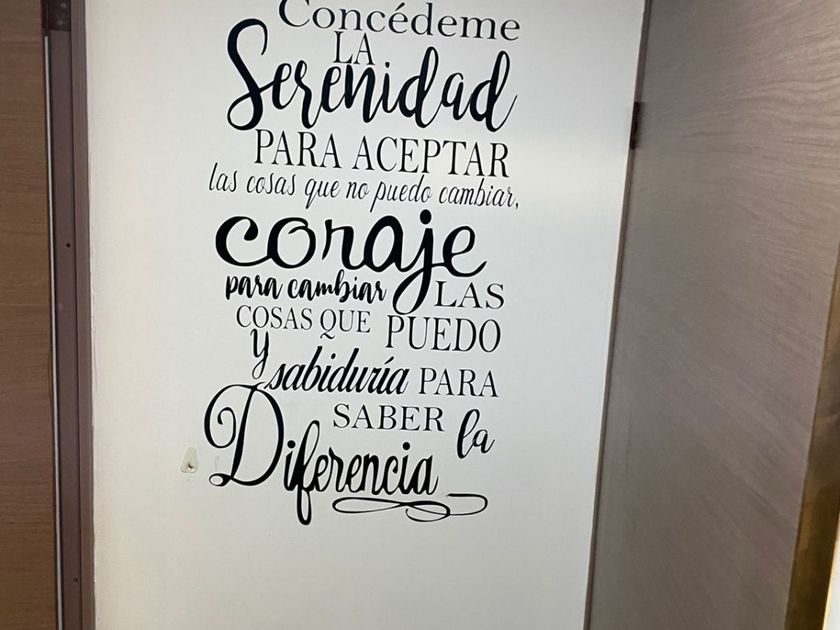 Concédeme
LA
Serenidad
PARA ACEPTAR
las cosas que no puedo cambiar,
coraje
para cambiar LAS
COSAS QUE PUEDO
y sabiduría PARA
SABER la
Diferencia